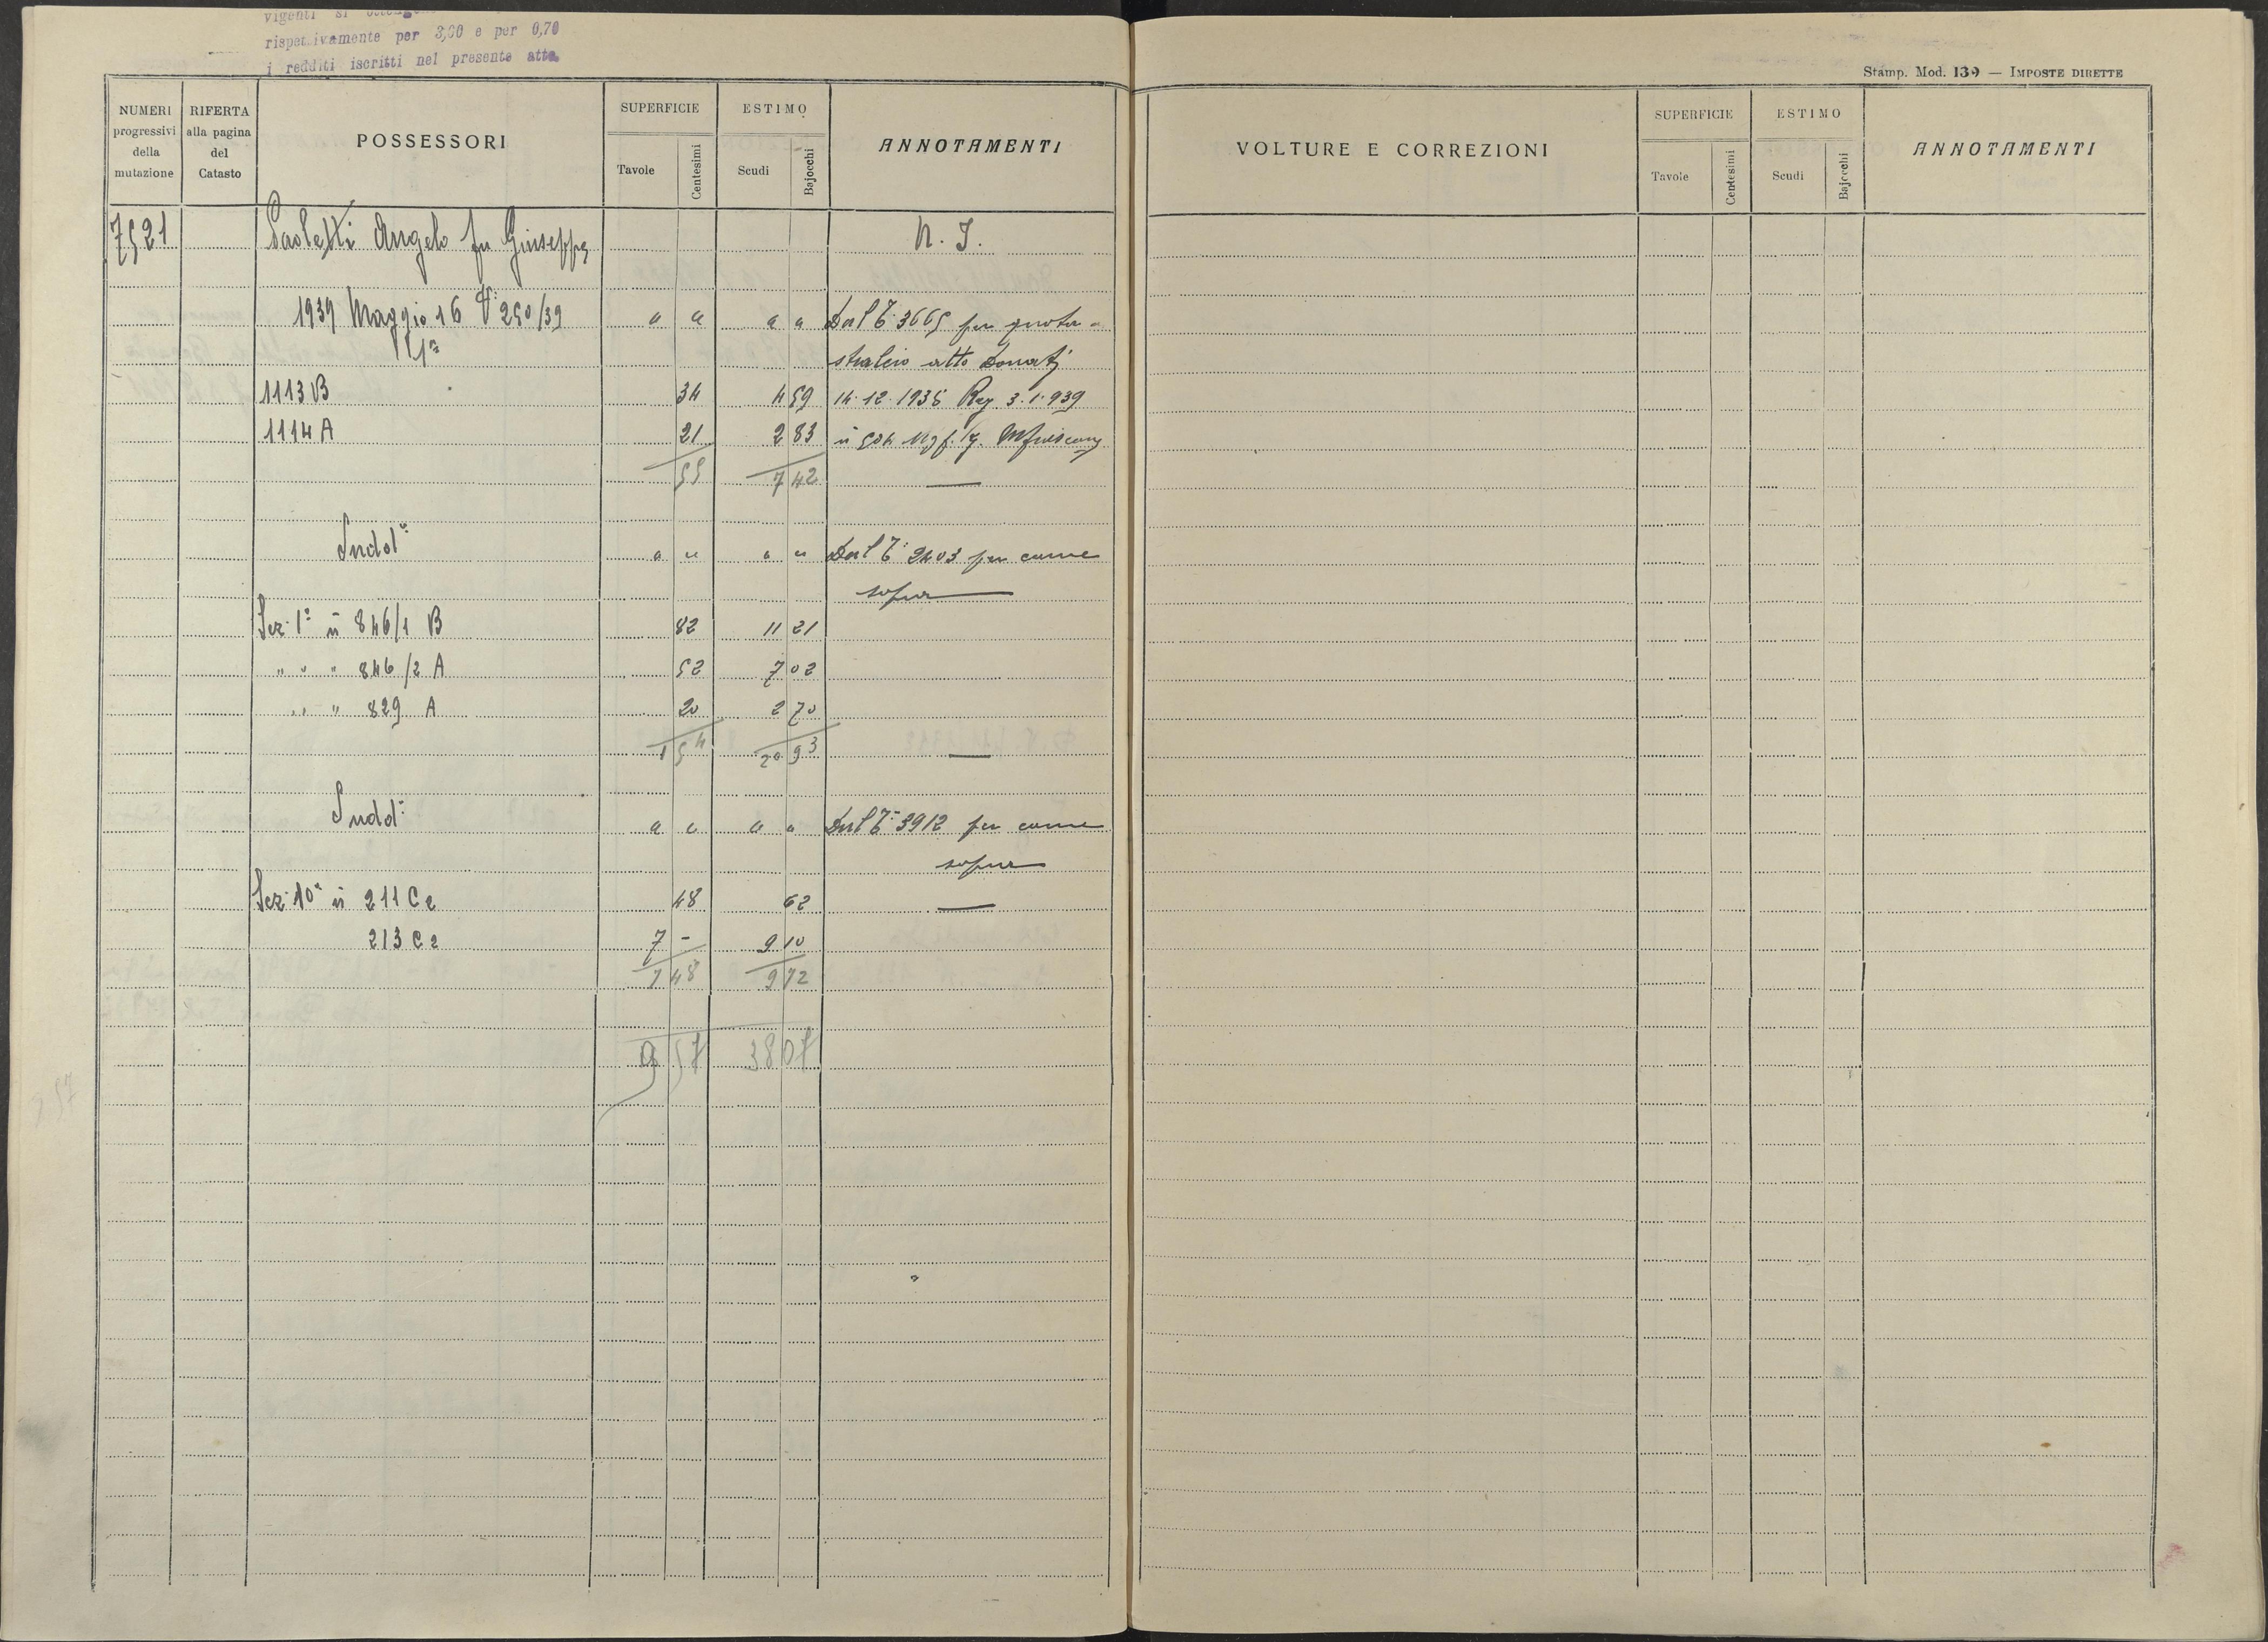 rispettivamente per 3,00 e per 0,70
i redditi iscritti nel presente atto.
Stamp. Mod. 139 — IMPOSTE DIRETTE
NUMERI progressivi della mutazione
RIFERTA alla pagina del Catasto
POSSESSORI
SUPERFICIE
Tavole
Centesimi
ESTIMO
Scudi
Bajocchi
ANNOTAMENTI
7521 Paoletti Angelo fu Giuseppe N. I.
1939 Maggio 16 V 250/39 " " " " Dal T. 3665 per
stralcio atto Donati
1113 B 34 4 59 14.12.1938 Reg 3.1.939
1114 A 21 2 83
55 7 42
Sudd. " " " " Dal T. 2403 per come
sopra
Sez. 1ª n 846/1 B 82 11 21
" " " 846/2 A 52 7 02
" " 829 A 20 2 70
1 54 20 93
Sudd. " " " " Dal T. 3912 per come
sopra
Sez. 10ª n 211 C2 48 62
213 C2 7 - 9 10
7 48 9 72
9 57 38 07
VOLTURE E CORREZIONI
SUPERFICIE
Tavole
Centesimi
ESTIMO
Scudi
Bajocchi
ANNOTAMENTI